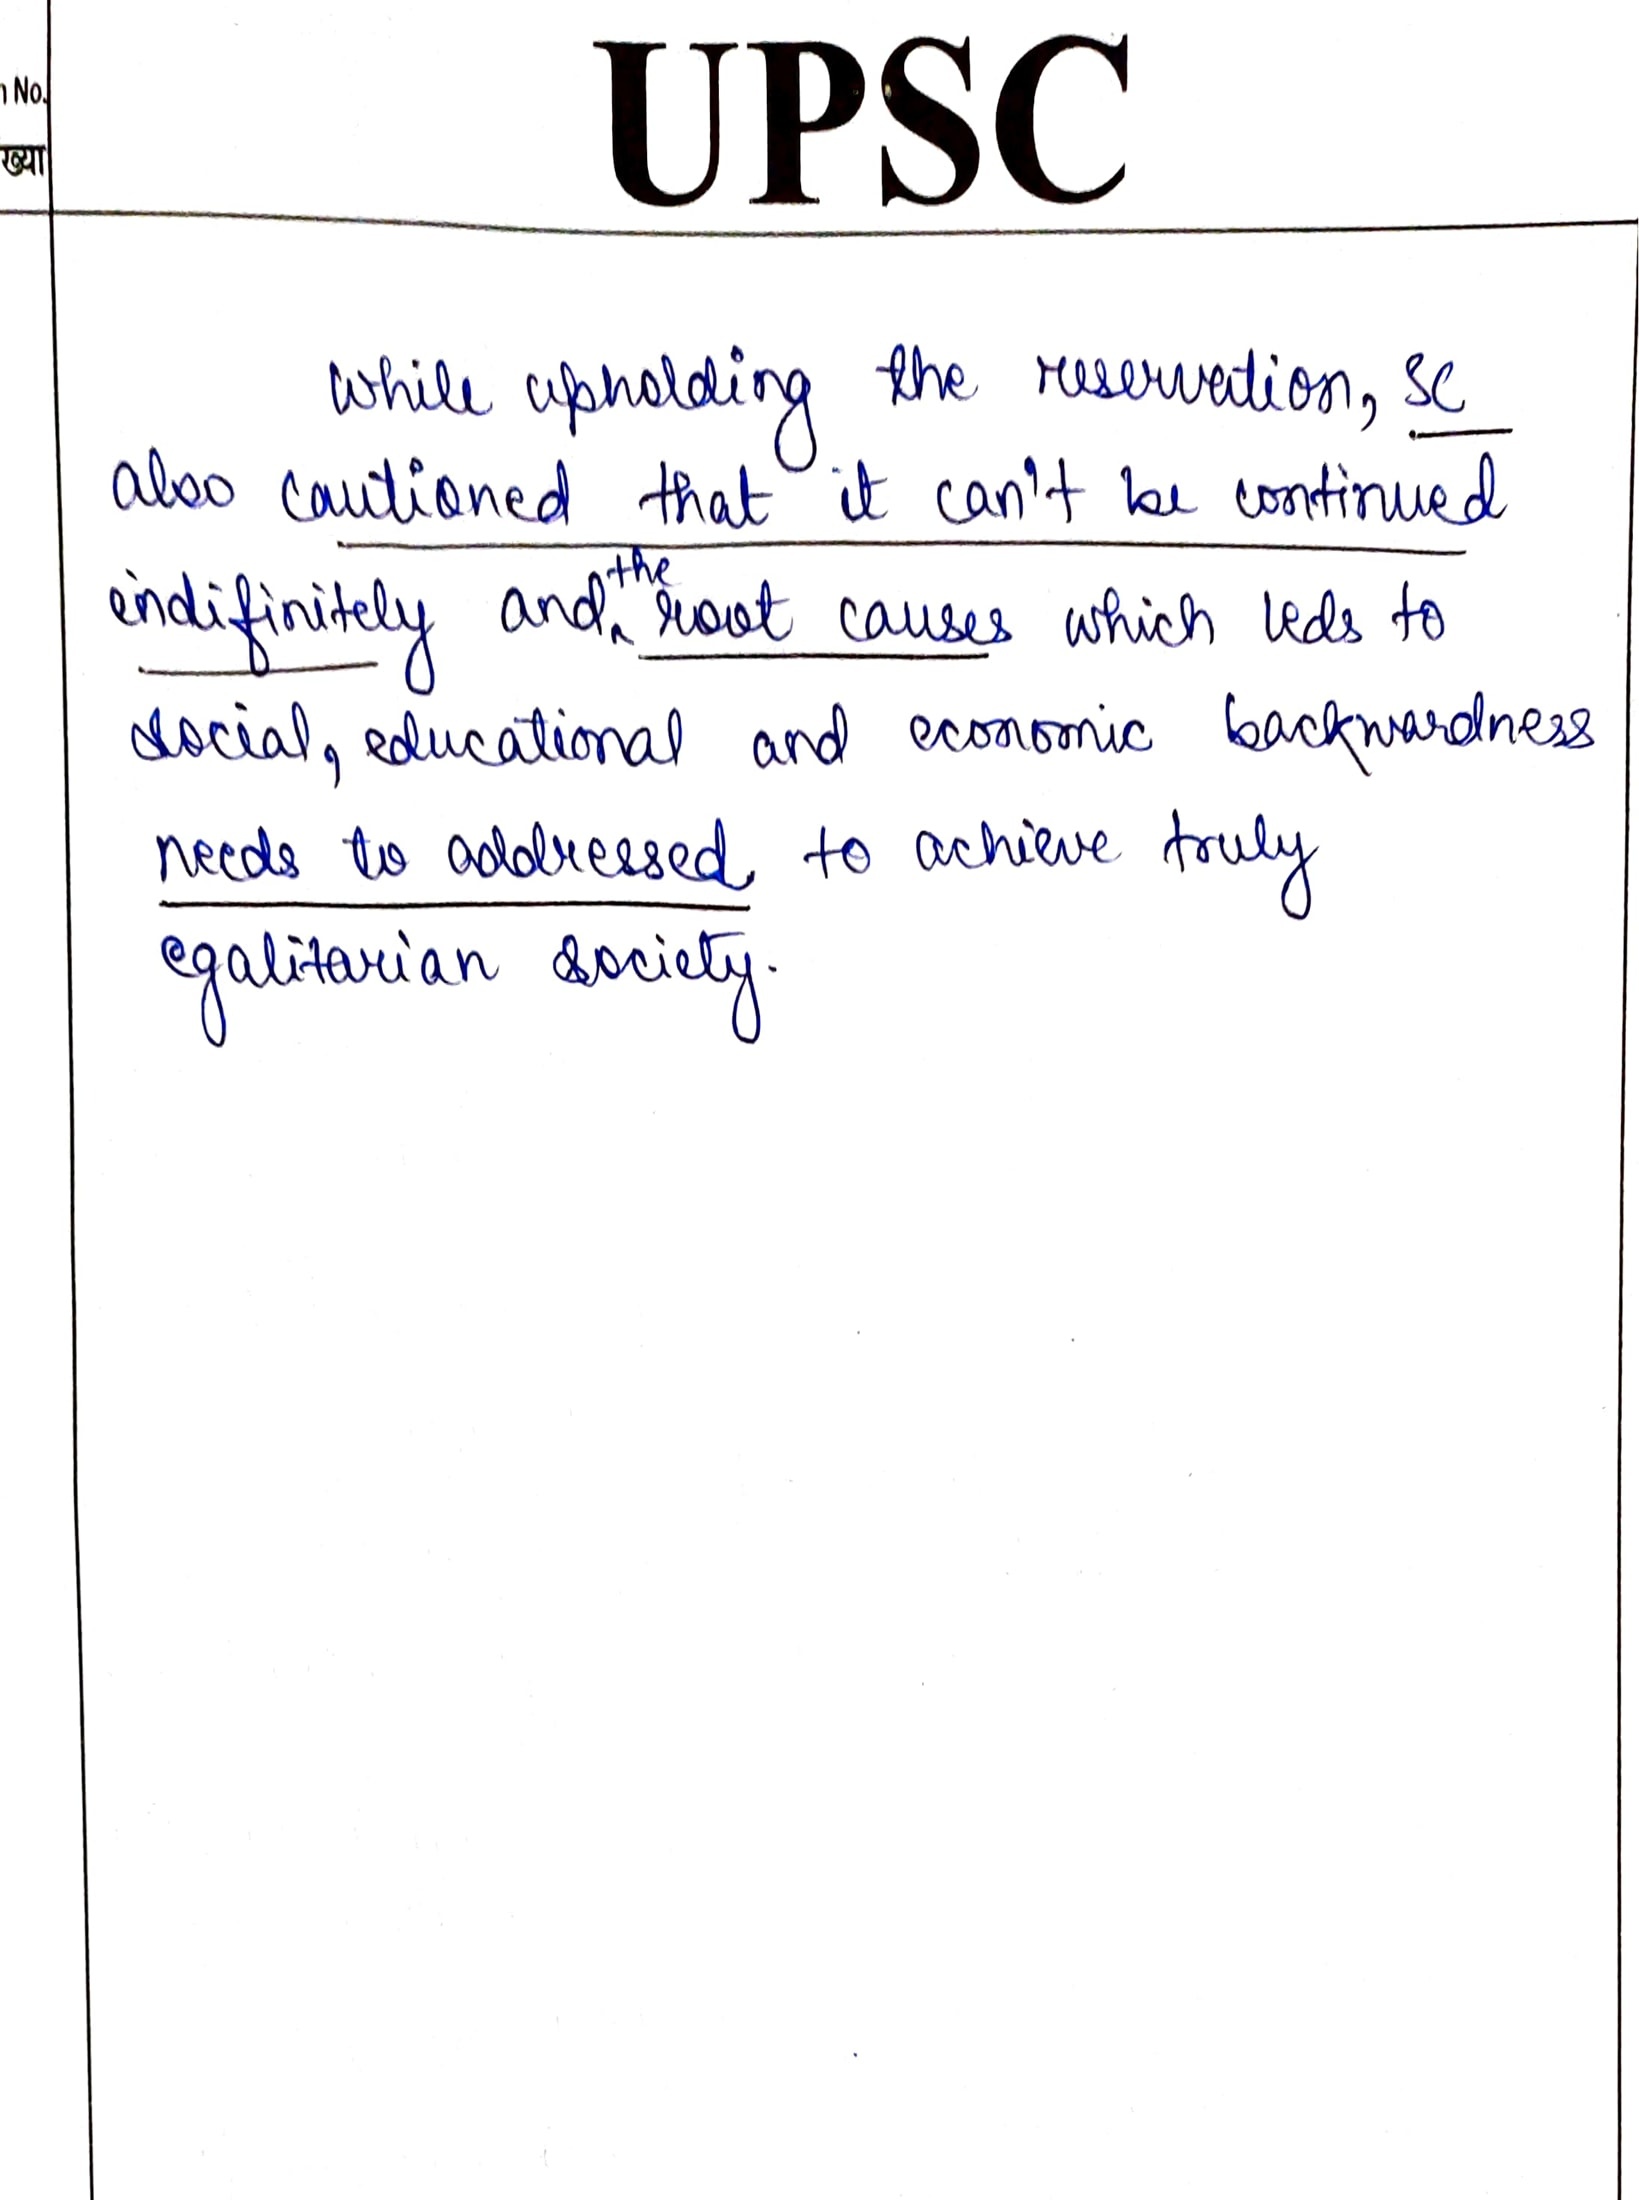 UPSC
No.
ख्या
While upholding the reservation, SC
also cautioned that it can't be continued
indifinitely and the root causes which leds to
social, educational and economic backwardness
needs to addressed to achieve truly
egalitarian society.